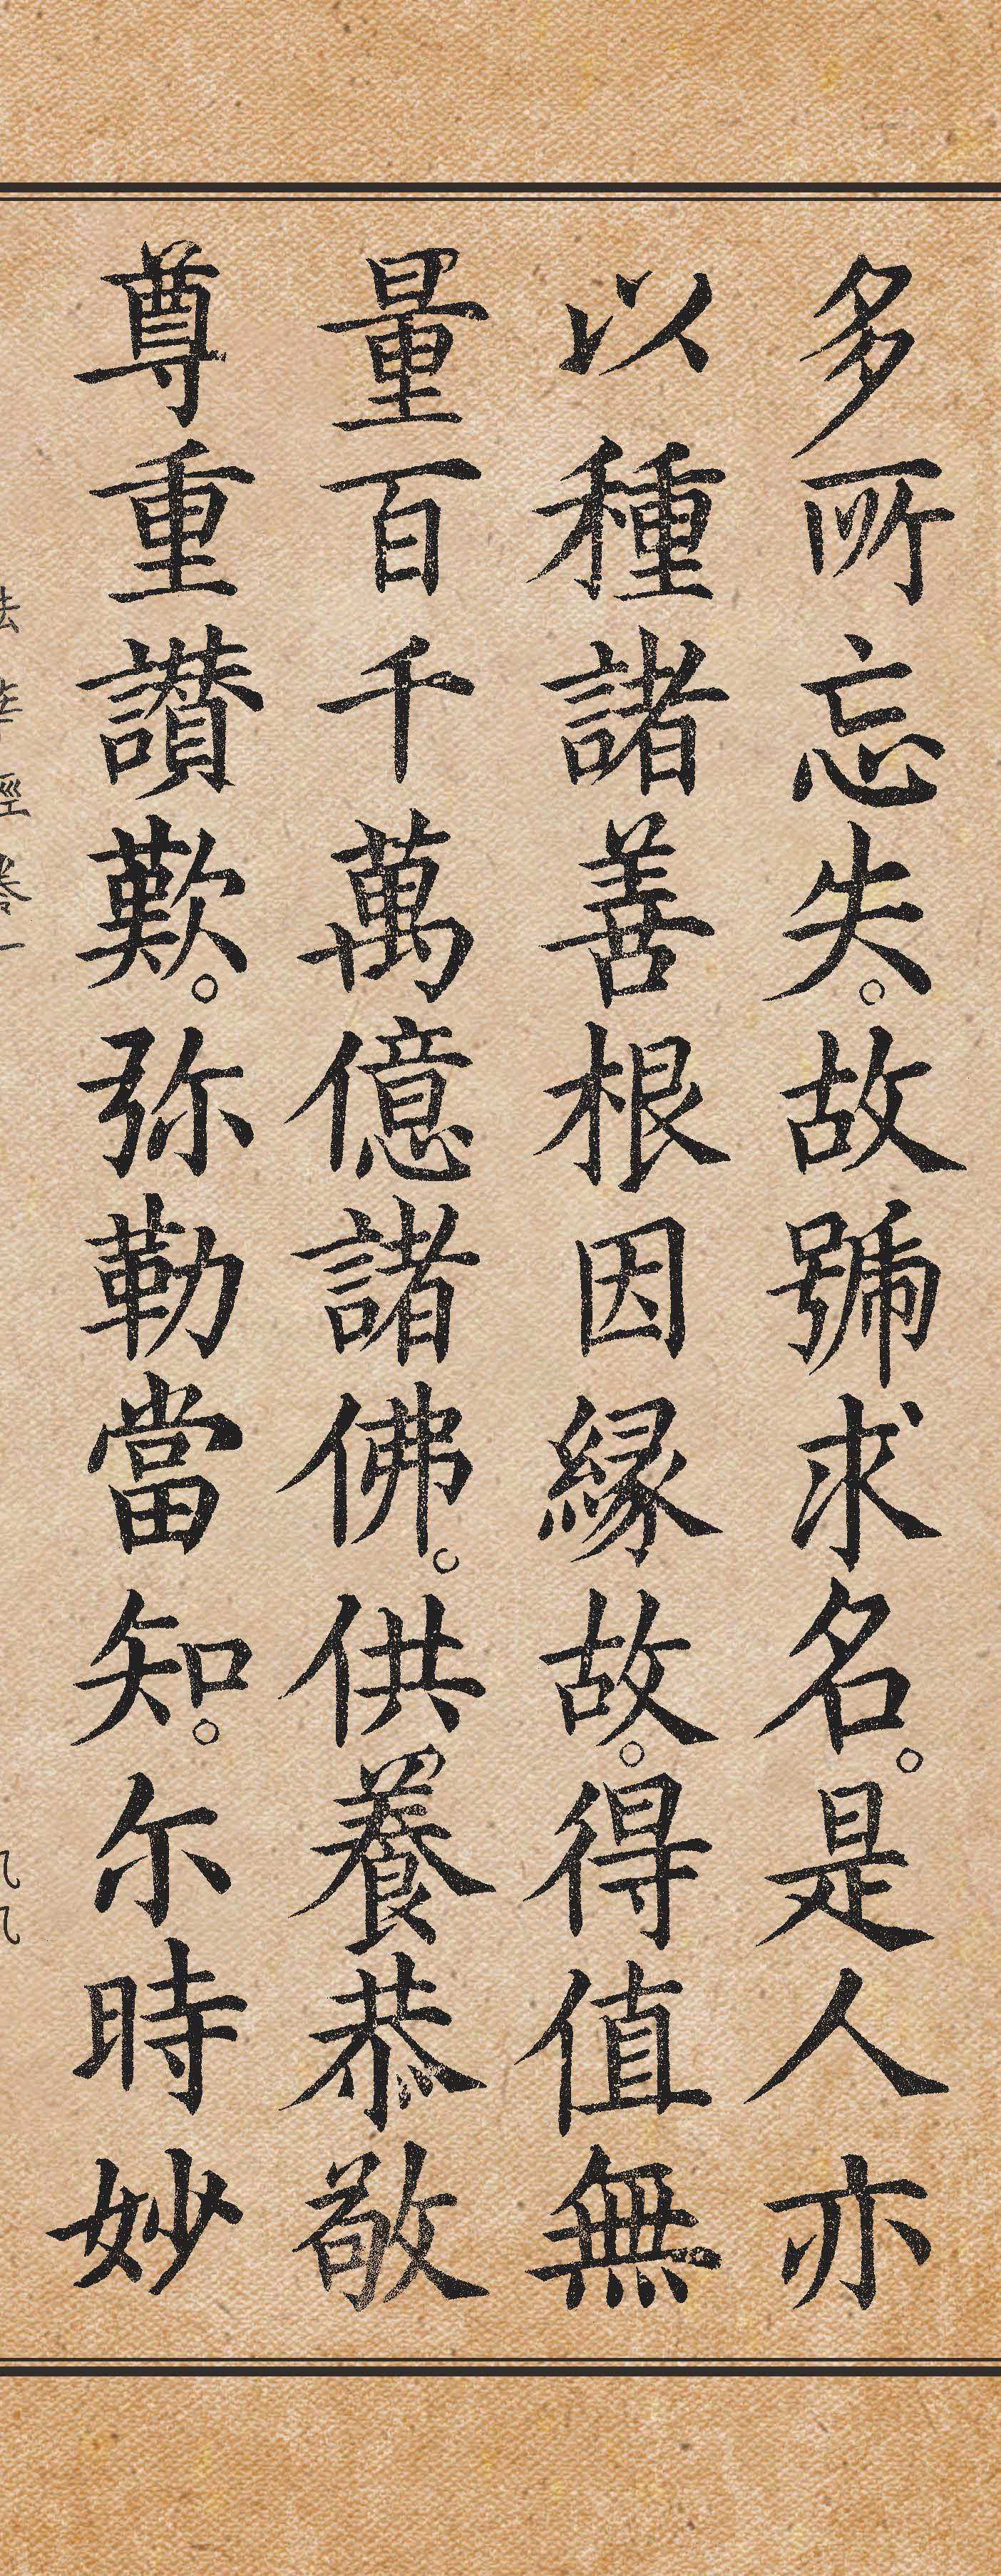 多所忘失。故號求名。是人亦
以種諸善根因緣故。得值無
量百千萬億諸佛。供養恭敬
尊重讃歎。弥勒當知。尓時妙
法華經卷一